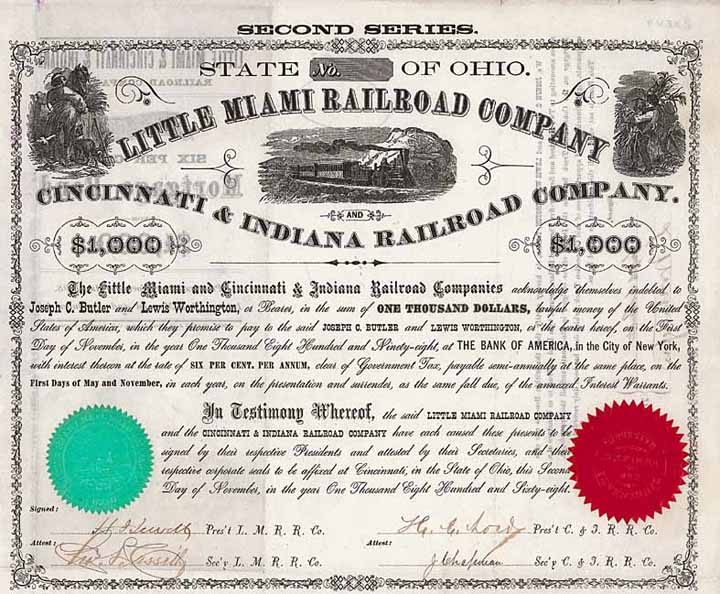 SECOND SERIES.
STATE No. OF OHIO.
LITTLE MIAMI RAILROAD COMPANY
AND
CINCINNATI & INDIANA RAILROAD COMPANY.
$1,000 $1,000
The Little Miami and Cincinnati & Indiana Railroad Companies acknowledge themselves indebted to
Joseph C. Butler and Lewis Worthington, or Bearer, in the sum of ONE THOUSAND DOLLARS, lawful money of the United
States of America, which they promise to pay to the said JOSEPH C. BUTLER and LEWIS WORTHINGTON, or the bearer hereof, on the First
Day of November, in the year One Thousand Eight Hundred and Ninety-eight, at THE BANK OF AMERICA, in the City of New York,
with interest thereon at the rate of SIX PER CENT. PER ANNUM, clear of Government Tax, payable semi-annually at the same place, on the
First Days of May and November, in each year, on the presentation and surrender, as the same fall due, of the annexed Interest Warrants.
In Testimony Whereof, the said LITTLE MIAMI RAILROAD COMPANY
and the CINCINNATI & INDIANA RAILROAD COMPANY have each caused these presents to be
signed by their respective Presidents and attested by their Secretaries, and their
respective corporate seals to be affixed at Cincinnati, in the State of Ohio, this Second
Day of November, in the year One Thousand Eight Hundred and Sixty-eight.
Signed:
Pres't L. M. R. R. Co. H. C. Lord Pres't C. & I. R. R. Co.
Attest: Attest:
Sec'y L. M. R. R. Co. J Chapman Sec'y C. & I. R. R. Co.